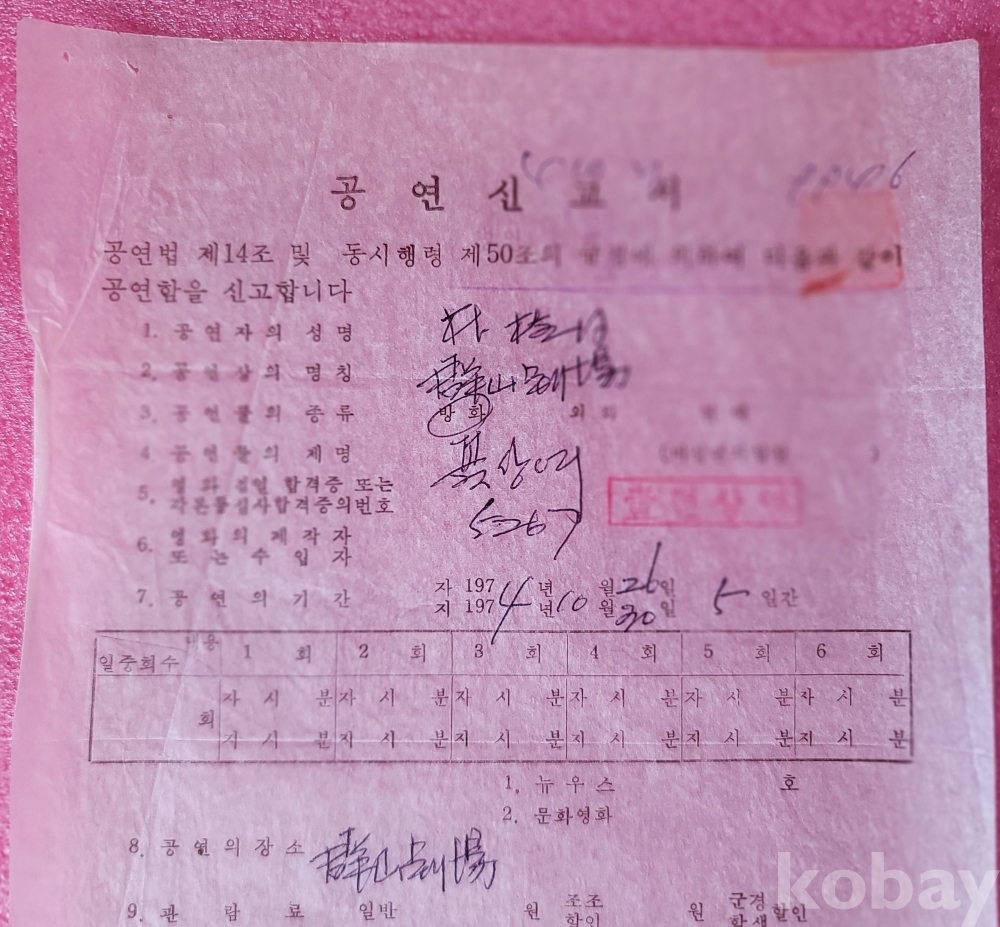 공연신고서
공연법 제14조 및 동시행령 제50조의 규정에 의하여 다음과 같이
공연함을 신고합니다
1. 공연자의 성명 朴
2. 공연장의 명칭 山 場
3. 공연물의 종류 방화 외화
4 공연물의 제명 꽃상여
5. 영화검열 합격증 또는
각본통심사합격증의번호 5267
6. 영화의 제작자
또는수입자
7. 공연의기간 자 197 년 월 26일
지 1974년10월30일 5 일간
내용
일중회수 1 회 2 회 3 회 4 회 5 회 6 회
자 시 분 자 시 분 자 시 분 자 시 분 자 시 분 자 시 분
회
지 시 분 지 시 분 지 시 분 지 시 분 지 시 분 지 시 분
1. 뉴우스 호
2. 문화영화
8. 공연의장소 場
9. 관람료 일반 원 조조 원 군경
할인 학생할인
kobay